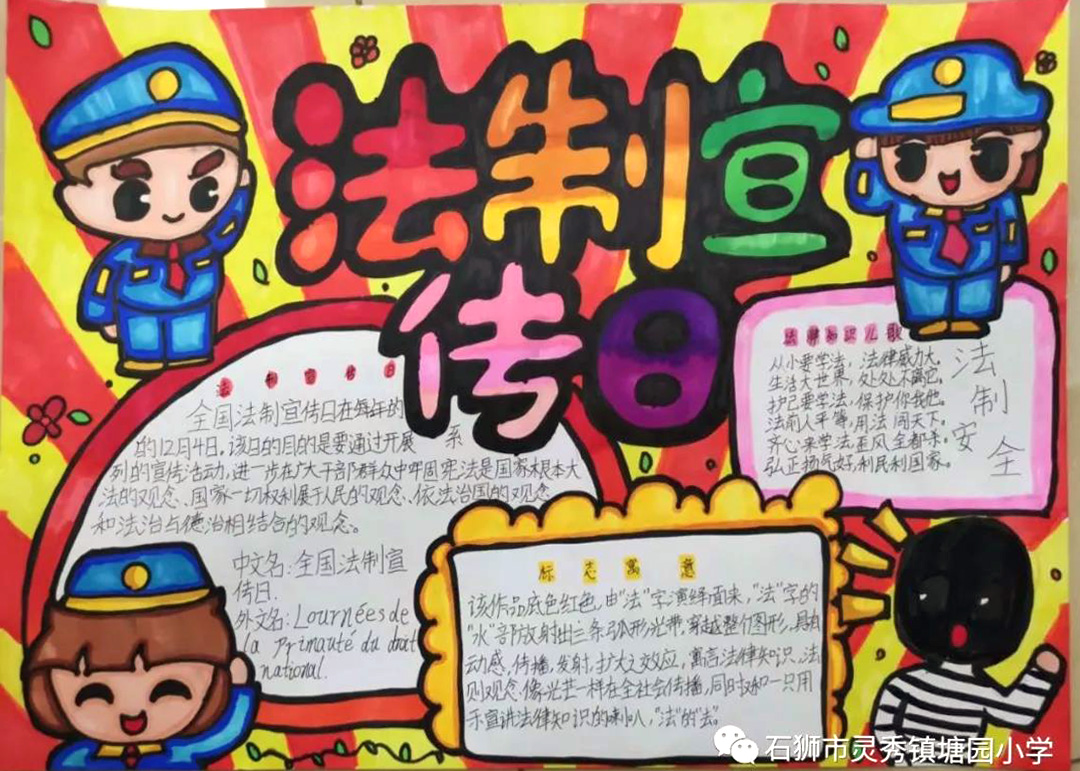 法制宣
传日
法制宣传日
全国法制宣传日在每年的
的12月4日。该日的目的是要通过开展 系
列的宣传活动,进一步在广大干部群众中牢固宪法是国家根本大
法的观念、国家一切权利属于人民的观念、依法治国的观念
和法治与德治相结合的观念。
中文名:全国法制宣
传日.
外文名:Lournées de
la Primauté du droit
national.
法律知识儿歌
从小要学法,法律威力大。
生活大世界,处处不离它。
护己要学法,保护你我他。
法前人平等,用法闯天下。
齐心来学法歪风全都杀。
弘正扬气好,利民利国家。
法
制
安
全
标志寓意
该作品底色红色,由"法"字演绎面来,"法"字的
"水"部放射出三条弧形光带,穿越整个图形,具有
动感,传播,发射,扩大之效应,寓言法律知识、法
则观念像光芒一样在全社会传播,同时又和一只用
示宣讲法律知识的喇叭,"法"的"去"。
石狮市灵秀镇塘园小学